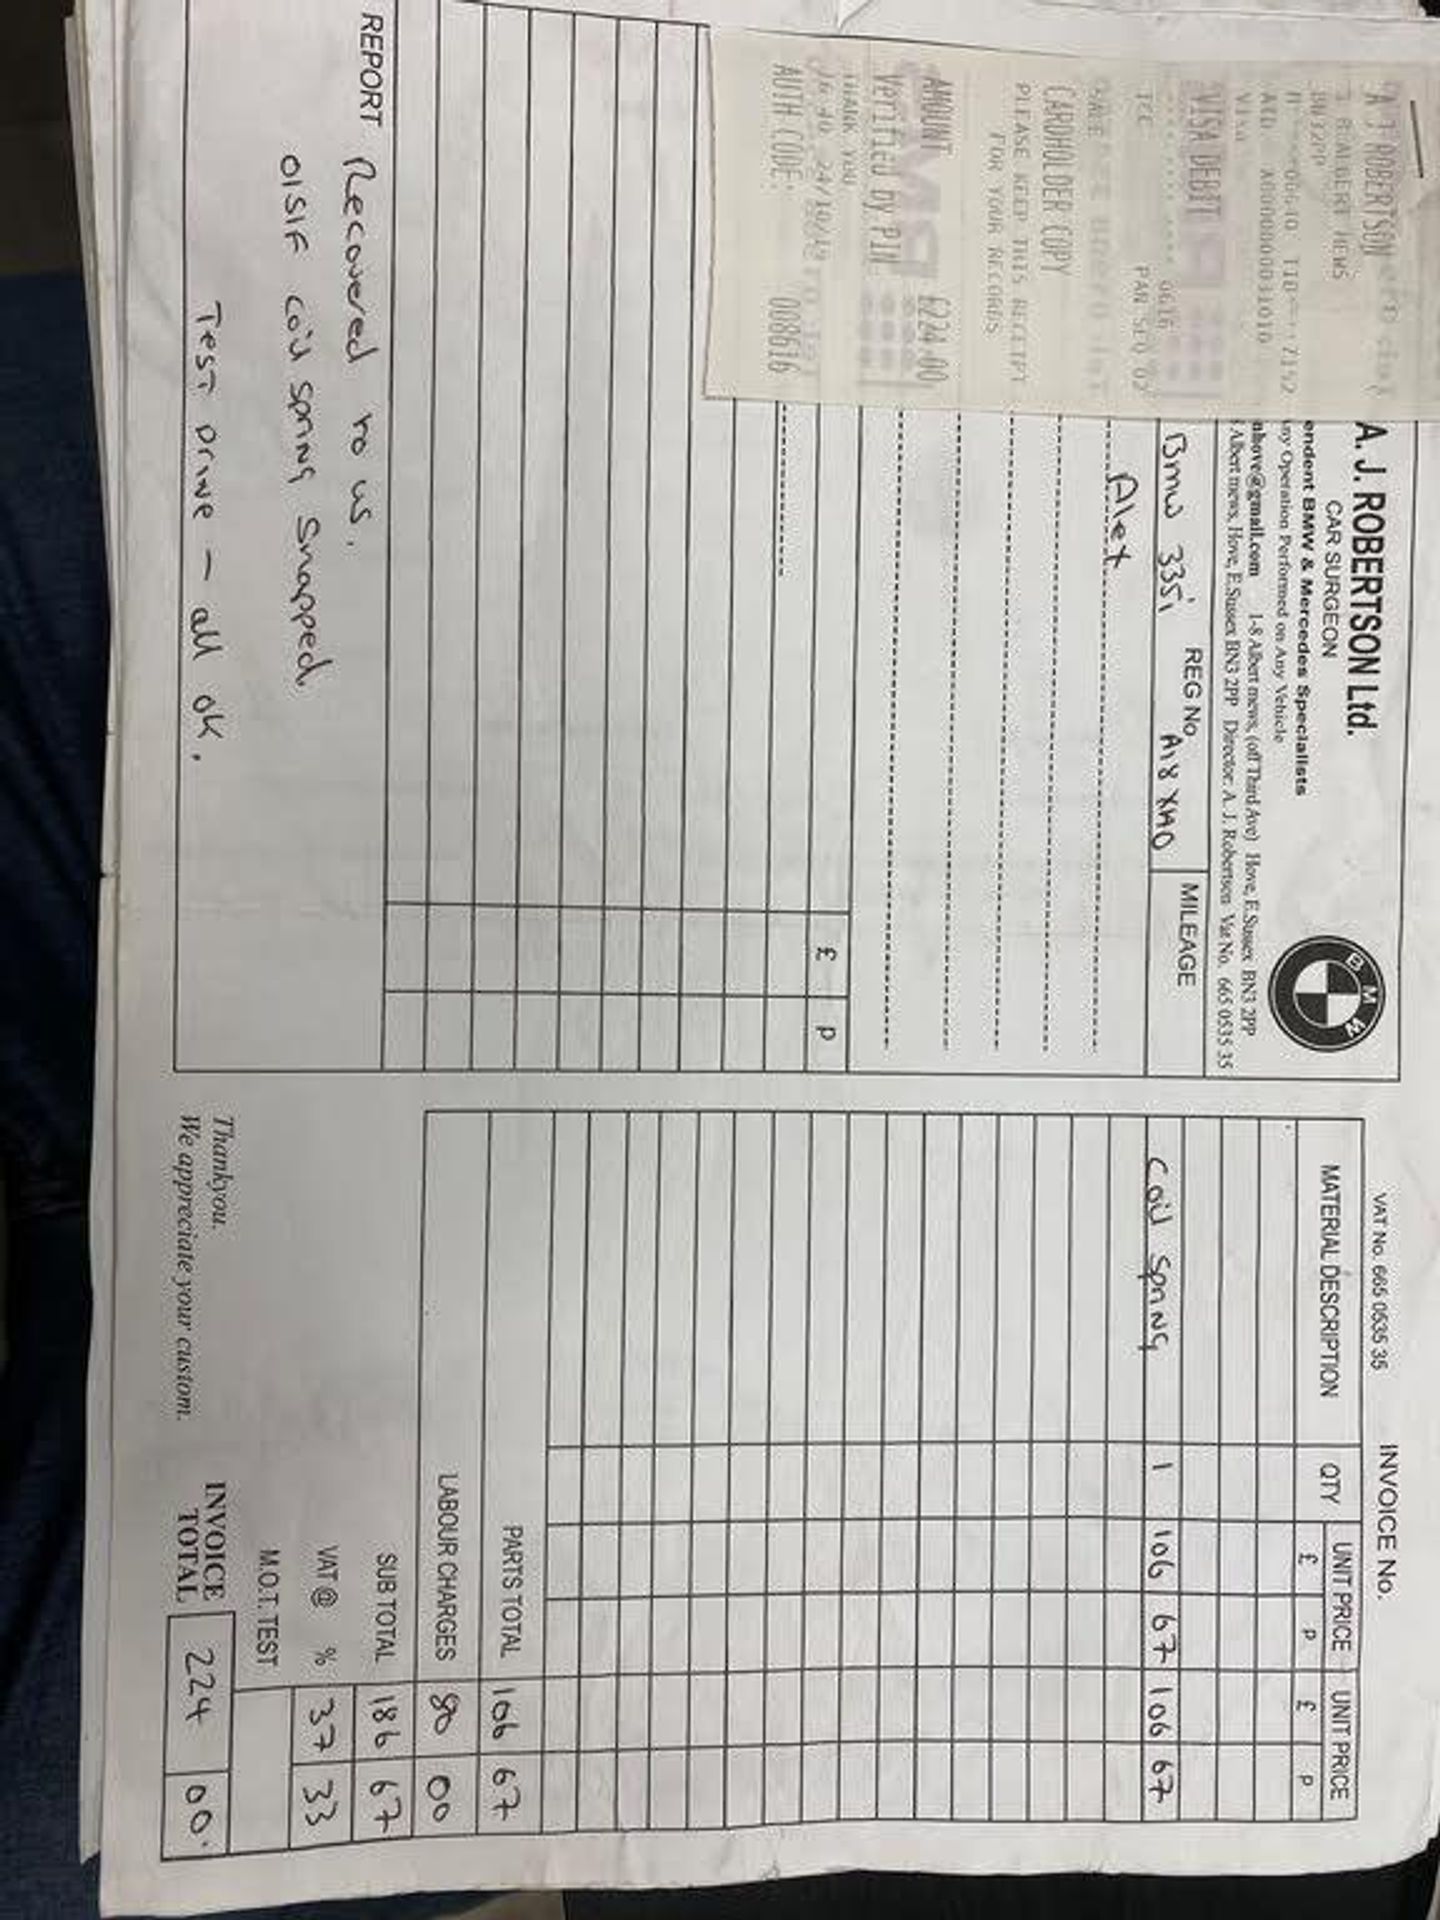 A. J. ROBERTSON Ltd.
CAR SURGEON
endent BMW & Mercedes Specialists
ny Operation Performed on Any Vehicle
nhove@gmail.com 1-8 Albert mews, (off Third Ave) Hove, E.Sussex BN3 2PP
Albert mews, Hove, E.Sussex BN3 2PP Director: A. J. Robertson Vat No. 665 0535 35
BMW
REG No. MILEAGE
Bmw 335i A18 XHO
Alex
£ p
REPORT Recovered to us.
O/S/F coil spring snapped.
Test drive - all ok.
A J ROBERTSON
ALBERT MEWS
BN32PP
AID: A0000000031010
VISA
VISA DEBIT
0616
ICC PAN SEQ 02
SALE
CARDHOLDER COPY
PLEASE KEEP THIS RECEIPT
FOR YOUR RECORDS
AMOUNT £224.00
Verified by PIN
THANK YOU
16:40 24/10/19
AUTH CODE: 008616
VAT No. 665 0535 35 INVOICE No.
MATERIAL DESCRIPTION QTY UNIT PRICE UNIT PRICE
£ p £ p
Coil spring 1 106 67 106 67
PARTS TOTAL 106 67
LABOUR CHARGES 80 00
SUB TOTAL 186 67
VAT @ % 37 33
M.O.T. TEST
Thankyou.
We appreciate your custom.
INVOICE
TOTAL 224 00.